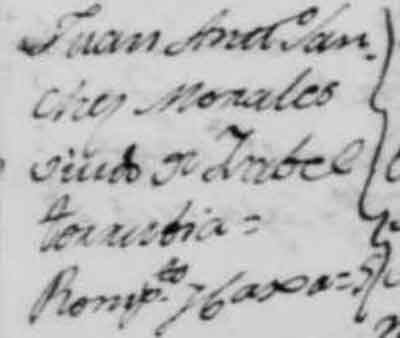 Juan Andᵒ San
chez Morales
viudo de Isabel
torrubia =
Romp.ᵗᵒ